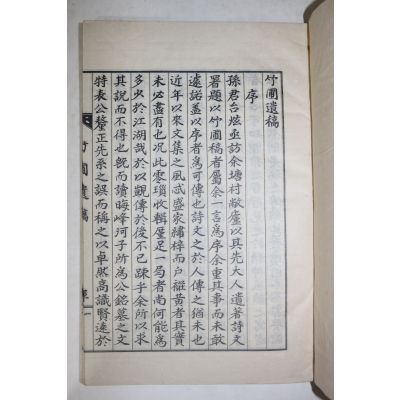 竹圃遺稿
序
孫君台炫亟訪余塘村敝廬以其先大人遺著詩文
署題以竹圃稿者屬余一言爲序余重其事而未敢
遽諾蓋以序者爲可傳也詩文之於人傳之猶未也
近年以來文集之風戒盛家繡梓而戶縱黃者其實
未必盡有也况此零瑣收輯屋足一局者尚何能爲
多少於江湖哉於以觀傳於後不已疎乎余所以求
其說而不得也旣而讀晦峰河子所爲公銘墓之文
特表公釐正先系之誤而稱之以卓然高識賢遠於
竹圃遺稿
序
一